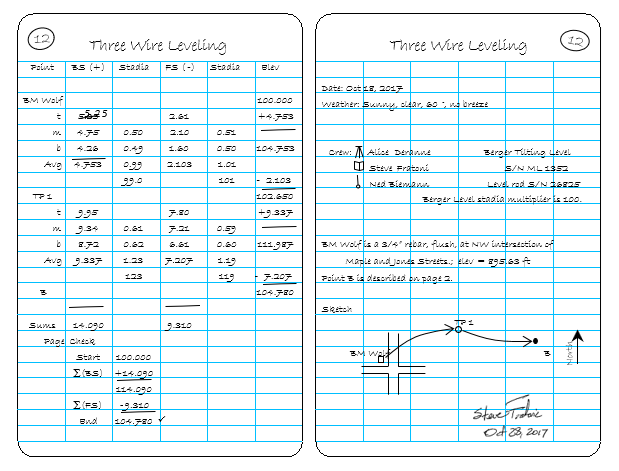 12
Three Wire Leveling
Point BS (+) Stadia FS (-) Stadia Elev
BM Wolf 100.000
t 5.25 2.61 +4.753
m 4.75 0.50 2.10 0.51
b 4.26 0.49 1.60 0.50 104.753
Avg 4.753 0.99 2.103 1.01
99.0 101 - 2.103
TP1 102.650
t 9.95 7.80 +9.337
m 9.34 0.61 7.21 0.59
b 8.72 0.62 6.61 0.60 111.987
Avg 9.337 1.23 7.207 1.19
123 119 - 7.207
B 104.780
Sums 14.090 9.310
Page Check
Start 100.000
Σ(BS) +14.090
114.090
Σ(FS) -9.310
End 104.780 ✓
12
Three Wire Leveling
Date: Oct 18, 2017
Weather: Sunny, clear, 60 °, no breeze
Crew: Alice Deranne Berger Tilting Level
Steve Fratoni S/N ML 1352
Ned Biemann Level rod S/N 26825
Berger Level stadia multiplier is 100.
BM Wolf is a 3/4" rebar, flush, at NW intersection of
Maple and Jones Streets.; elev = 895.63 ft
Point B is described on page 2.
Sketch
TP1
BM Wolf
B
North
Oct 28, 2017